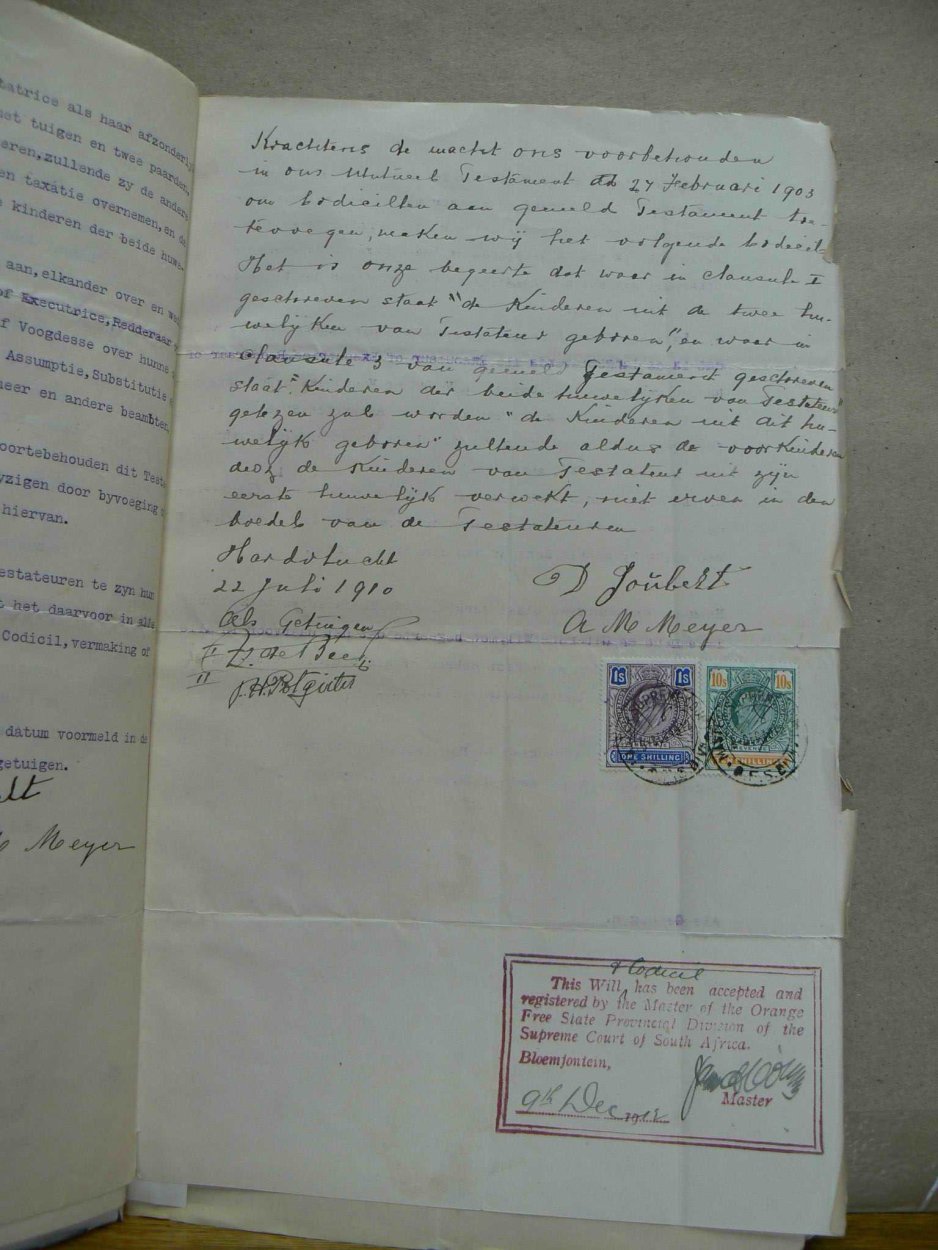 tatrice als haar afzonderly
met tuigen en twee paarden,
eren, zullende zy de andere
en taxatie overnemen, en de
e kinderen der beide huwe
aan, elkander over en wed
of Executrice, Redderaar
f Voogdesse over hunne
Assumptie, Substitutie
heer en andere beambten,
oortebehouden dit Test
yzigen door byvoeging
hiervan.
estateuren te zyn hun
t het daarvoor in alle
Codicil, vermaking of
datum voormeld in de
getuigen.
Meyer
Krachtens de macht ons voorbehouden
in ons Mutueel Testament dd 27 Februari 1903
om kodicillen aan gemeld Testament toe-
tevoegen, maken wij het volgende kodicil.
Het is onze begeerte dat waar in clausule I
geschreven staat "de Kinderen uit de twee hu-
welijken van Testateur geboren", en waar in
clausule 3 van gemeld Testament geschreven
staat "Kinderen der beide huwelijken van Testateur"
gelezen zal worden "de Kinderen uit dit hu-
welijk geboren" zullende aldus de voorkinderen
de kinderen van Testateur uit zijn
eerste huwelijk verwekt, niet erven in den
boedel van de Testateuren
22 Juli 1910
D Joubert
Als Getuigen
A M Meyer
J. H. Potgieter
1s 1s
ONE SHILLING
10s 10s
REVENUE
& Codicil
This Will, has been accepted and
registered by the Master of the Orange
Free State Provincial Division of the
Supreme Court of South Africa.
Bloemfontein,
9th Dec 1912
Master